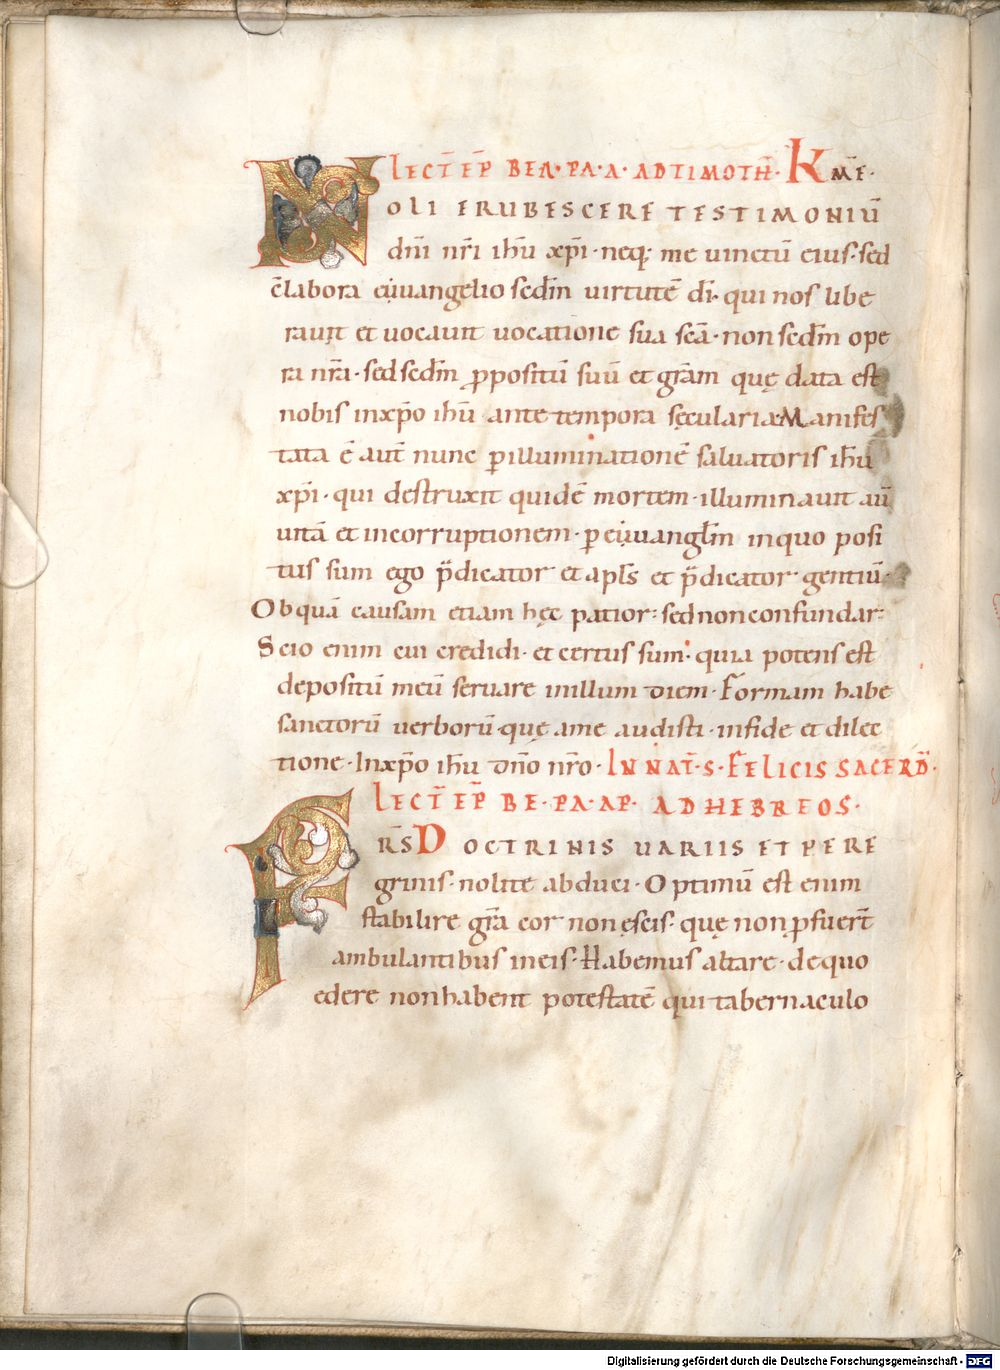 LECT̄ EP̄ BEA·PA·A·AD TIMOTH̄· K M̄E·
N OLI ERUBESCERE TESTIMONIŪ
dn̄i nr̄i ih̄u xp̄i· neq; me uinctū eius· sed
c̄labora euuangelio scd̄m uirtutē dī· qui nos libe
rauit et uocauit uocatione sua sc̄ā· non scd̄m ope
ra nr̄a· sed scd̄m ꝓpositū suū et gr̄am quę data est
nobis in xp̄o ih̄u ante tempora sęcularia· Manifes
tata ē aut̄ nunc ꝑ illuminationē saluatoris ih̄u
xp̄i· qui destruxit quidē mortem· illuminauit aū
uitā et incorruptionem· ꝑ euuangl̄m in quo posi
tus sum ego p̄dicator et apl̄s et p̄dicator gentiū·
Ob quā causam etiam hęc patior: sed non confundar:
Scio enim cui credidi· et certus sum· quia potens est
depositū meū seruare in illum diem· Formam habe
sanctorū uerborū· quę a me audisti· in fide et dilec
tione· In xp̄o ih̄u dn̄o nr̄o· IN NAT̄·S· FELICIS SACERD̄·
LECT̄ EP̄ BE·PA·AP· AD HEBREOS·
F RS̄ DOCTRINIS UARIIS ET PERE
grinis· nolite abduci· Optimū est enim
stabilire gr̄a cor non ęscis· quę non ꝓfuer̄t
ambulantibus in eis· Habemus altare· de quo
edere non habent potestatē qui tabernaculo
Digitalisierung gefördert durch die Deutsche Forschungsgemeinschaft - DFG